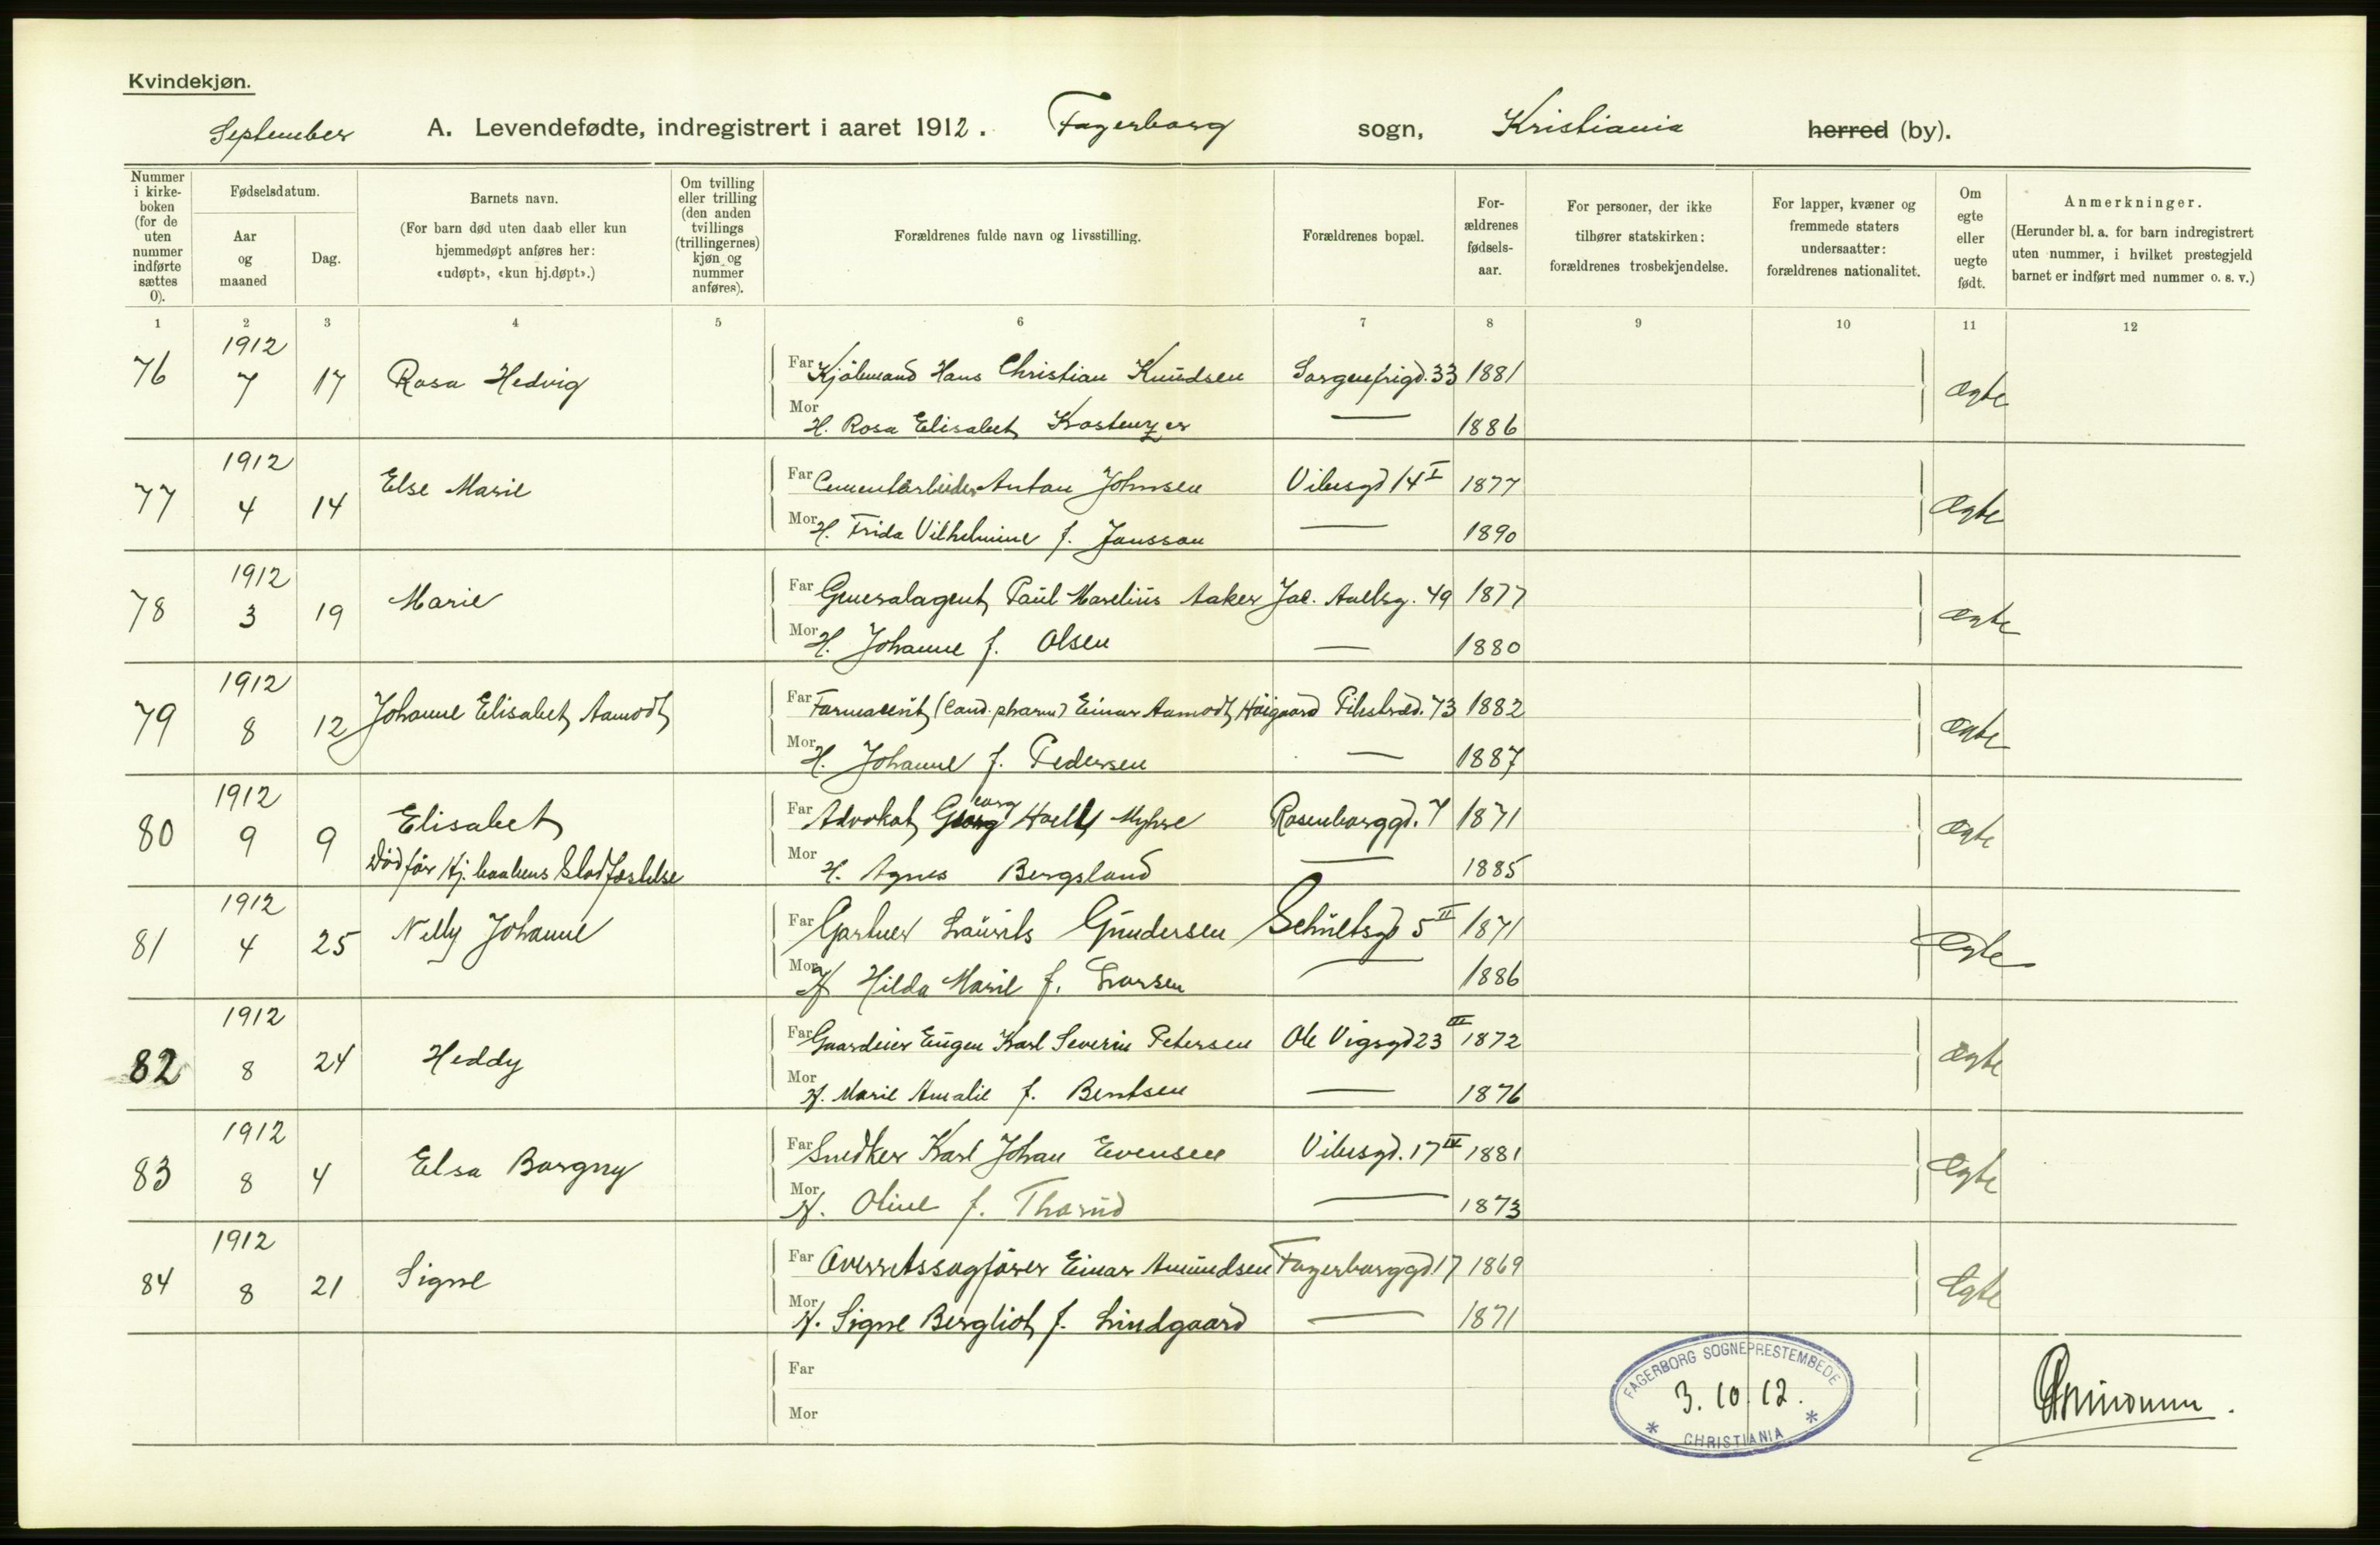 Kvindekjøn.
September A. Levendefødte, indregistrert i aaret 1912. Fagerborg sogn, Kristiania herred (by).
Nummer i kirkeboken (for de uten nummer indførte sættes 0).
Fødselsdatum.
Aar og maaned
Dag.
Barnets navn.
(For barn død uten daab eller kun hjemmedøpt anføres her: «udøpt», «kun hj.døpt».)
Om tvilling eller trilling (den anden tvillings (trillingernes) kjøn og nummer anføres).
Forældrenes fulde navn og livsstilling.
Forældrenes bopæl.
For-ældrenes fødsels-aar.
For personer, der ikke tilhører statskirken: forældrenes trosbekjendelse.
For lapper, kvæner og fremmede staters undersaatter: forældrenes nationalitet.
Om egte eller uegte født.
Anmerkninger.
(Herunder bl. a. for barn indregistrert uten nummer, i hvilket prestegjeld barnet er indført med nummer o. s. v.)
1 2 3 4 5 6 7 8 9 10 11 12
76 1912 7 17 Rosa Hedvig Far Kjøbmand Hans Christian Knudsen Sorgenfrigd. 33 1881 ægte
Mor H. Rosa Elisabet Kostenzer — 1886
77 1912 4 14 Else Marie Far Cementarbeider Anton Johnsen Vibesgd 14 I 1877 ægte
Mor H. Frida Vilhelmine f. Jansson — 1890
78 1912 3 19 Marie Far Generalagent Paul Marelius Aaker Jac. Aallsg. 49 1877 ægte
Mor H. Johanne f. Olsen — 1880
79 1912 8 12 Johanne Elisabet Aamodt Far Farmaceut (cand. pharm) Einar Aamodt Høigaard Pilestræd. 73 1882 ægte
Mor H. Johanne f. Pedersen — 1887
80 1912 9 9 Elisabet Far Advokat Georg Myhre Rosenborggd. 7 1871 ægte
Død før Hj. daabens Stadfæstelse
Mor H. Agnes Bergsland — 1885
81 1912 4 25 Nelly Johanne Far Gartner Laurits Gundersen Schultsgd 5 II 1871 ægte
Mor H Hilda Marie f. Larsen — 1886
82 1912 8 24 Heddy Far Gaardeier Eugen Karl Severin Petersen Ole Vigsgd 23 III 1872 ægte
Mor H. Marie Amalie f. Berntsen — 1876
83 1912 8 4 Elsa Borgny Far Snedker Karl Johan Evensen Vibesgd. 17 IV 1881 ægte
Mor H. Oline f. Thorud — 1873
84 1912 8 21 Signe Far Overretssagfører Einar Amundsen Fagerborggd 17 1869 Egte
Mor H. Signe Bergliot f. Lindgaard — 1871
Far
Mor
FAGERBORG SOGNEPRESTEMBEDE
3. 10. 12.
* CHRISTIANIA *